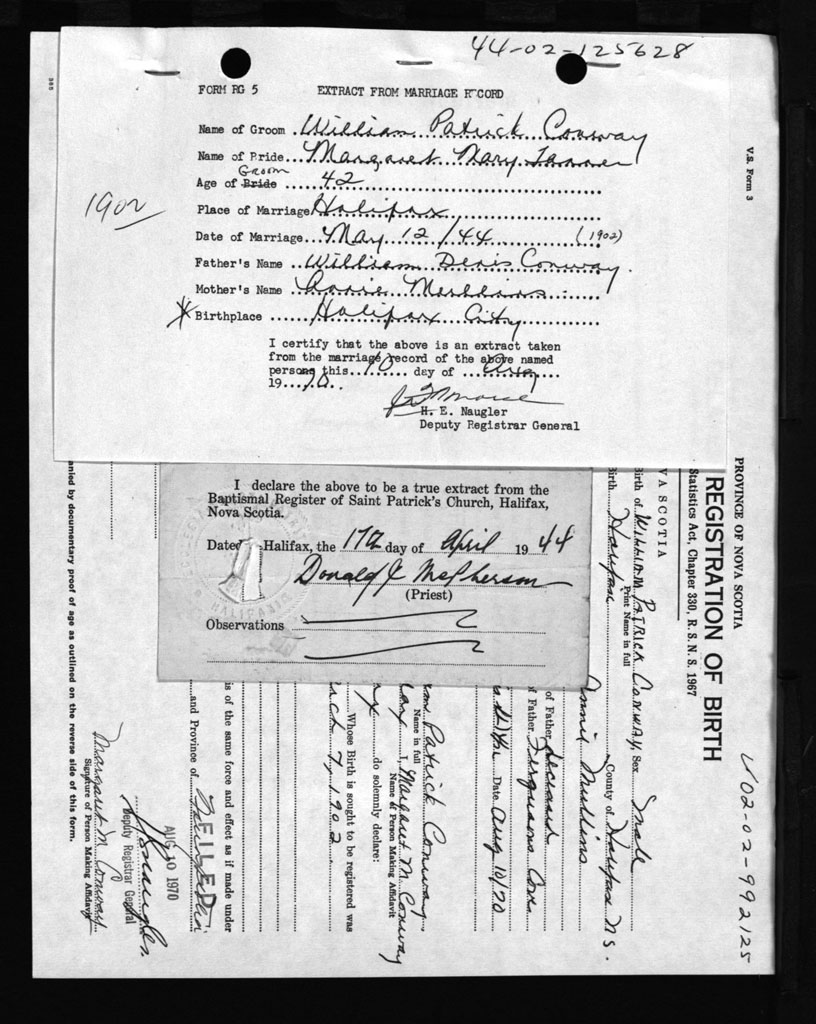 44-02-125628
FORM RG 5 EXTRACT FROM MARRIAGE RECORD
Name of Groom William Patrick Conway
Name of Bride Margaret Mary Tanner
Groom
Age of Bride 42
1902
Place of Marriage Halifax
Date of Marriage May 12/44 (1902)
Father's Name William Denis Conway
Mother's Name Annie Mullins
* Birthplace Halifax City
I certify that the above is an extract taken
from the marriage record of the above named
persons this 10 day of Aug
19 70.
H. E. Naugler
Deputy Registrar General
385
V.S. Form 3
I declare the above to be a true extract from the
Baptismal Register of Saint Patrick's Church, Halifax,
Nova Scotia.
Dated Halifax, the 17th day of April 19 44
Donald J. McPherson
(Priest)
Observations
PROVINCE OF NOVA SCOTIA
REGISTRATION OF BIRTH
Statistics Act, Chapter 330, R. S. N. S. 1967
V02-02-992125
VA SCOTIA
Birth of WILLIAM PATRICK CONWAY Sex Male
Print Name in full
Birth Halifax County of Halifax N S.
Annie Mullins
of Father deceased
of Father Fergusons Cove
Date Aug 10/70
Patrick Conway
Name in full
I, Margaret M. Conway
Name of Person Making Affidavit
do solemnly declare:
Whose Birth is sought to be registered was
7, 1902.
is of the same force and effect as if made under
and Province of
FILED
AUG 10 1970
Deputy Registrar General
Margaret M. Conway
Signature of Person Making Affidavit
anied by documentary proof of age as outlined on the reverse side of this form.